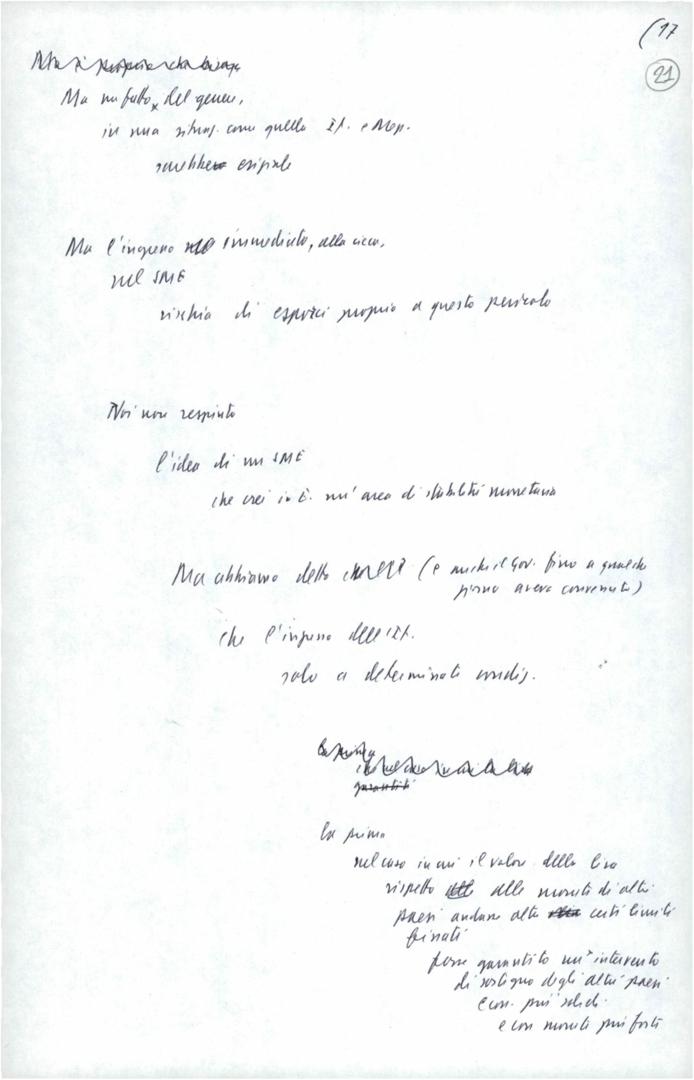 (17
21
Ma un fatto del genere,
in una situaz. come quella It. e Mezz.
sarebbe esiziale
Ma l'ingresso immediato, alla cieca,
nel SME
rischia di esporci proprio a questo pericolo
Noi non respinto
l'idea di un SME
che crei in E. un'area di stabilità monetaria
Ma abbiamo detto (e anche il Gov. fino a qualche
giorno aveva convenuto)
che l'ingresso dell'It.
solo a determinate condiz.
La prima
garantiti
La prima
nel caso in cui il valore della lira
rispetto alle monete di altri
paesi andasse oltre certi limiti
fissati
fosse garantito un intervento
di sostegno degli altri paesi
econ. più solidi
e con monete più forti